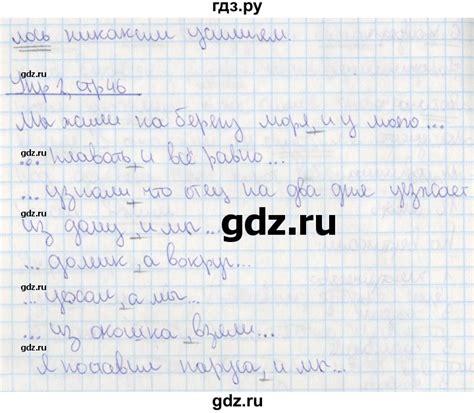 гдз.ру
лось никаким усилием.
Упр 2, стр 46
Мы жили на берегу моря, и у моего...
... плавать, и всё равно...
... узнали, что отец на два дня уезжает
из дому, и мы...
... домик, а вокруг...
... уехал, а мы...
... из окошка, взели...
Я поставил паруса, и мы...
gdz.ru
gdz.ru
gdz.ru
gdz.ru
gdz.ru
gdz.ru
gdz.ru
gdz.ru
gdz.ru
gdz.ru
gdz.ru